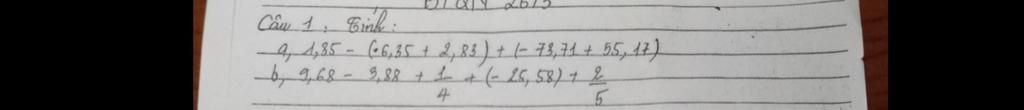 Câu 1: Tính:
a, 1,85 - (-6,35 + 2,83) + (-73,71 + 55,17)
b, 9,68 - 3,88 + 1/4 + (-25,58) + 2/5